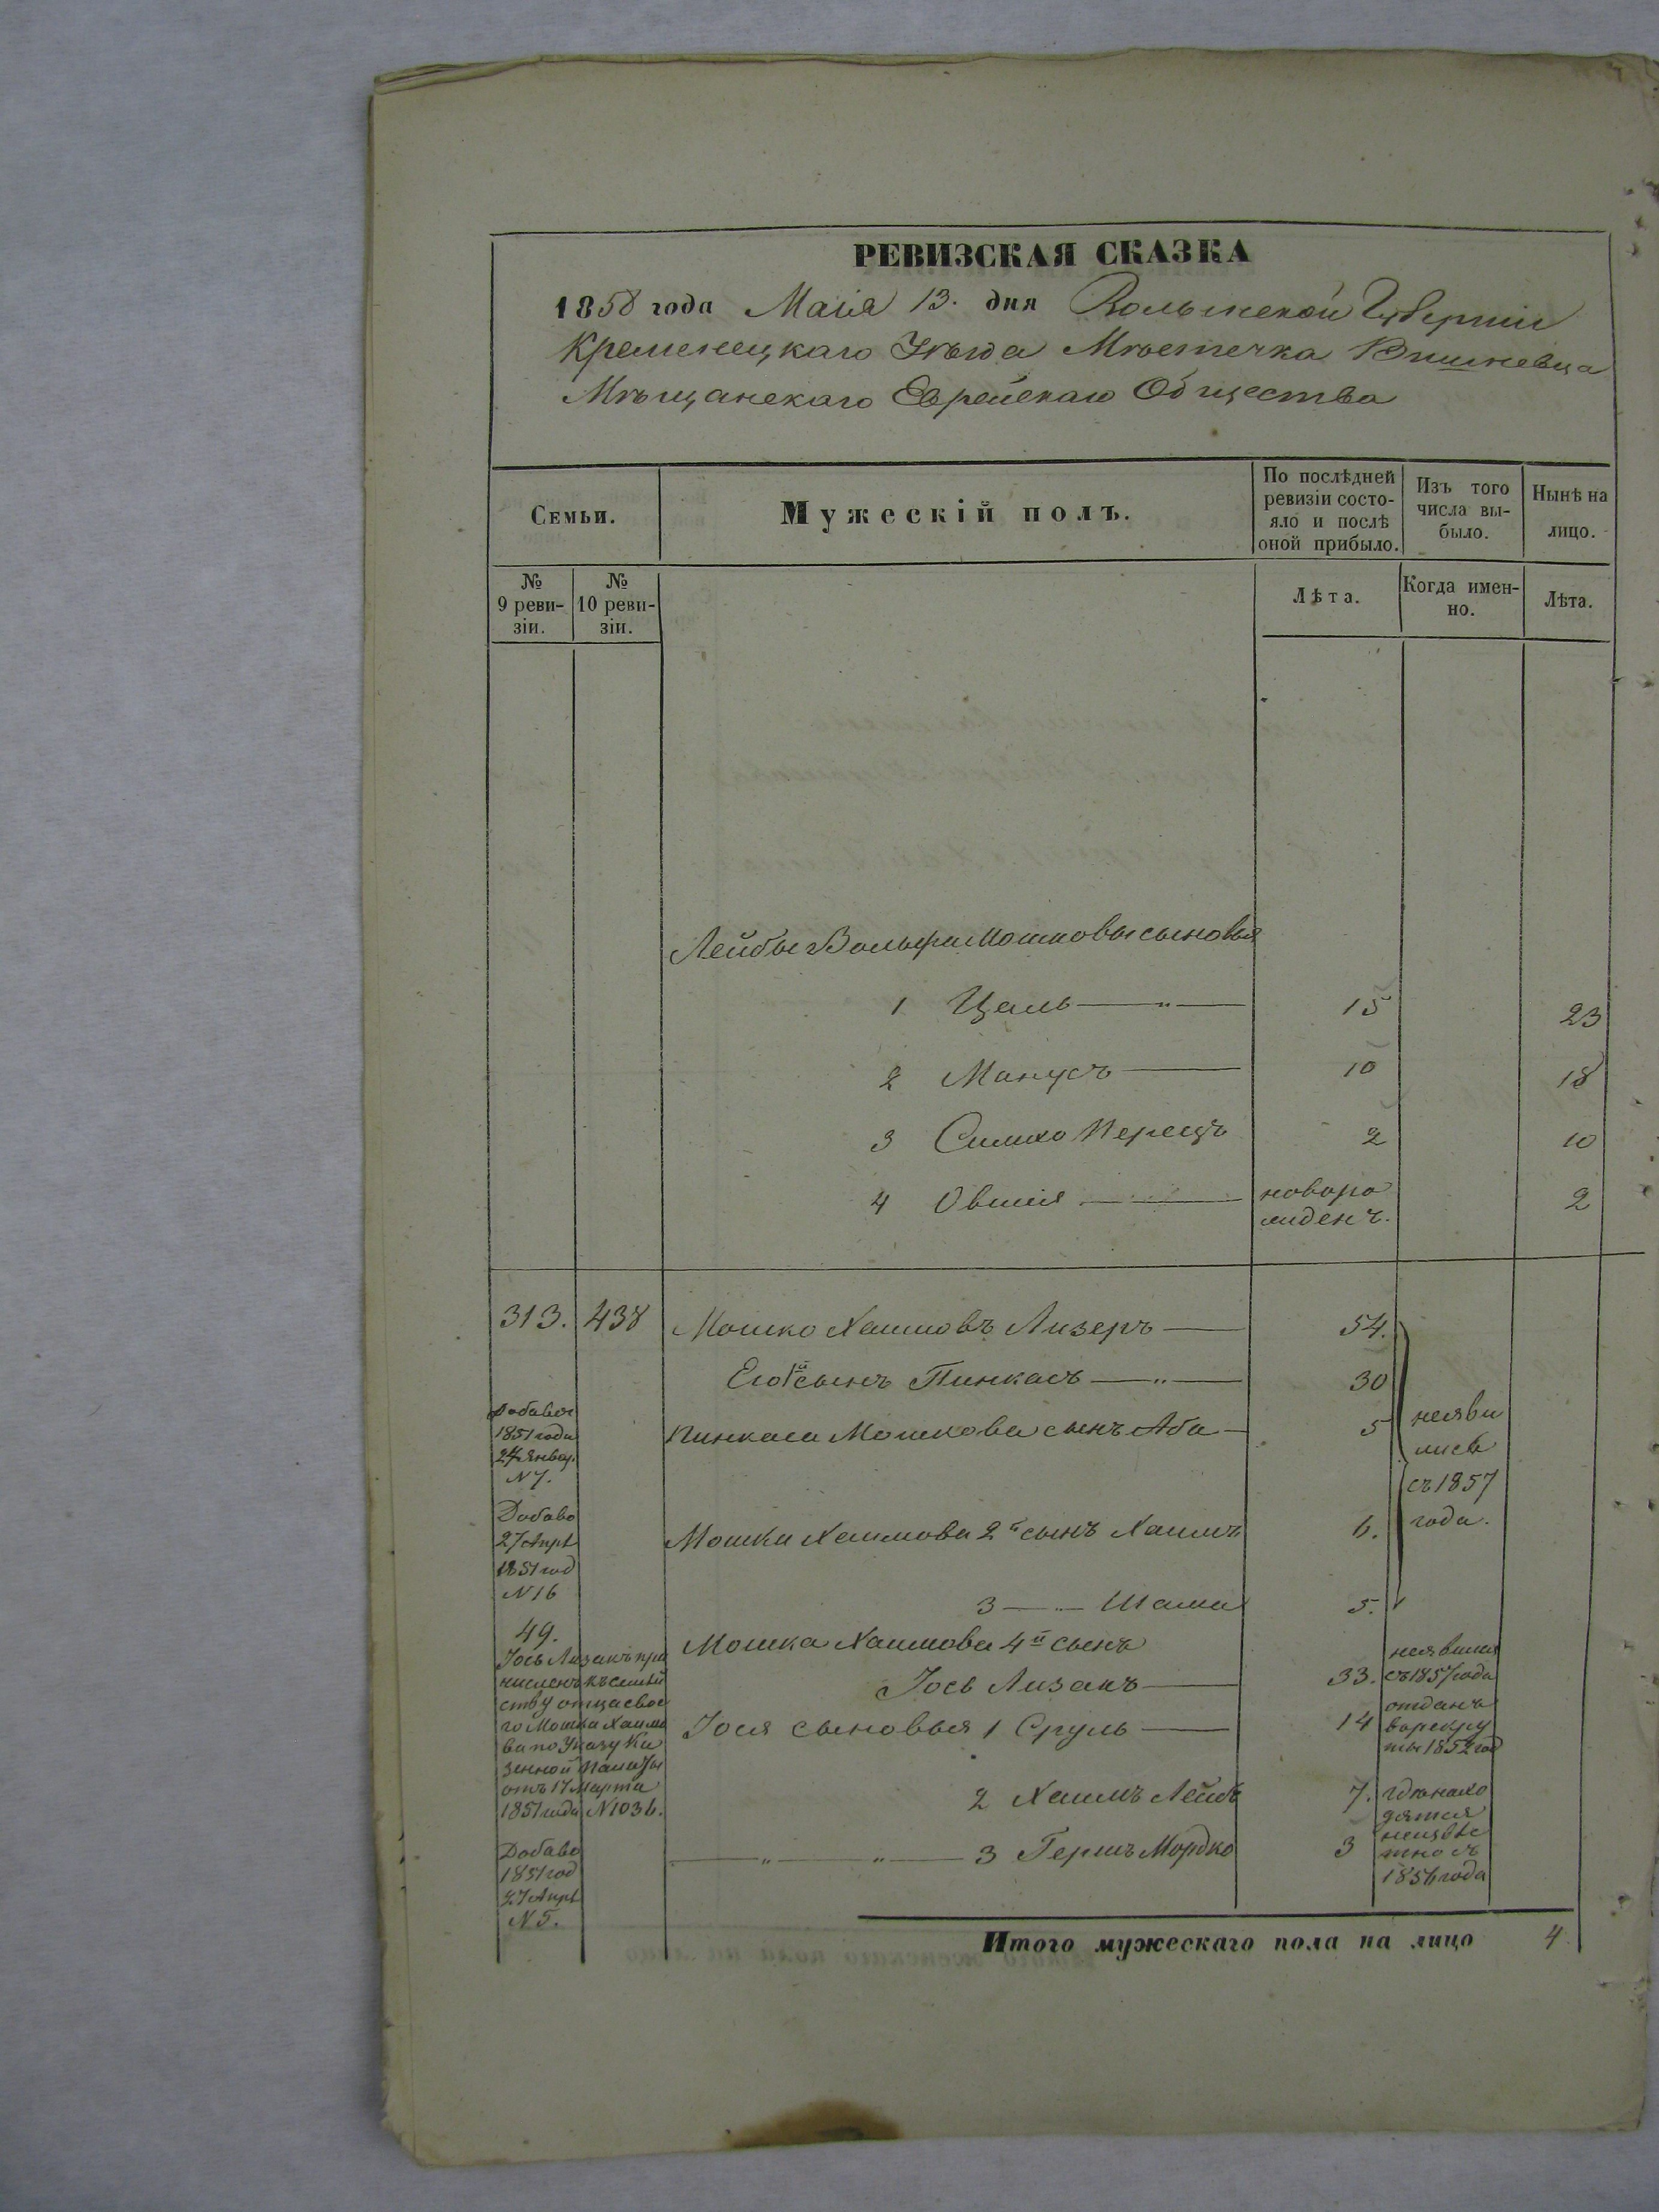 РЕВИЗСКАЯ СКАЗКА
1858 года Маія 13. дня Волынской Губерніи
Кременецкаго Уѣзда Мѣстечка Вишневца
Мѣщанскаго Еврейскаго Общества
Семьи.
Мужескій полъ.
По послѣдней
ревизіи состо-
яло и послѣ
оной прибыло.
Изъ того
числа вы-
было.
Нынѣ на
лицо.
№
9 реви-
зіи.
№
10 реви-
зіи.
Лѣта.
Когда имен-
но.
Лѣта.
Лейбы Вольфа Мошковы сыновья
1 Цаль 15 23
2 Манусъ 10 18
3 Симхо Перецъ 2 10
4 Овшія новоро 2
жденъ.
313. 438 Мошко Хаимовъ Лизеръ 54.
Его 1й сынъ Пинкасъ 30
Пинкаса Мошкова сынъ Аба 5
неяви
лись
съ 1857
года.
Добавоч
1851 года
24 Январ.
N 7.
Мошка Хаимова 2й сынъ Хаимъ 6.
Добаво
27 Апрѣ
1851 год
N 16
3 Шама 5.
49.
Іось Лизакъ при
численъ къ семей
ству отца свое
го Мошка Хаимо
ва по Указу Ка
зенной Палаты
отъ 17 Марта
1851 года N 1036.
Мошка Хаимова 4й сынъ
Іось Лизакъ 33.
неявился
съ 1857 года
Іося сыновья 1 Сруль 14
отданъ
в рекру
ты 1852 год
2 Хаимъ Лейбъ 7.
3 Гершъ Мордко 3
гдѣ нахо
дятся
неизвѣс
тно съ
1856 года
Добаво
1851 год
27 Апрѣ
N 5.
Итого мужескаго пола на лицо 4